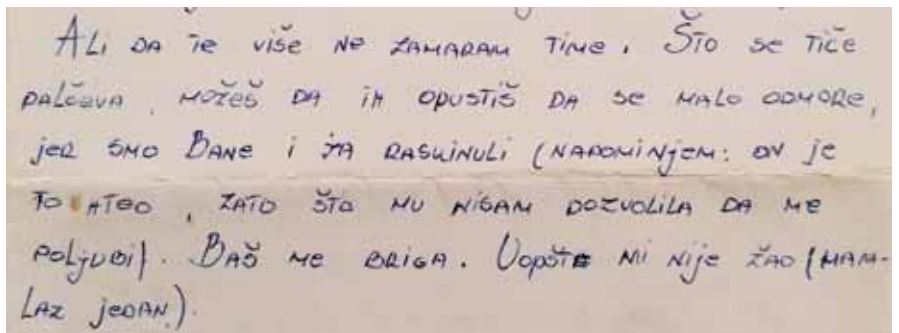 Ali da te više ne zamaram time. Što se tiče
palčeva, možeš da ih opustiš da se malo odmore,
jer smo Bane i ja raskinuli (napominjem: on je
to hteo, zato što mu nisam dozvolila da me
poljubi). Baš me briga. Uopšte mi nije žao (mam-
laz jedan).